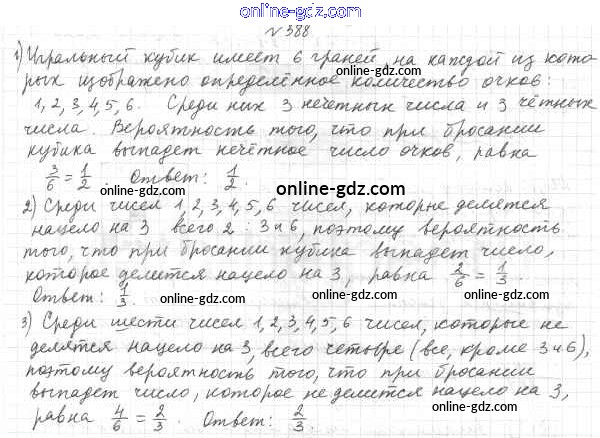 online-gdz.com
№ 388
1) Игральный кубик имеет 6 граней, на каждой из кото-
рых изображено определённое количество очков:
online-gdz.com online-gdz.com
1, 2, 3, 4, 5, 6. Среди них 3 нечетных числа и 3 чётных
числа. Вероятность того, что при бросании
кубика выпадет нечётное число очков, равна
3/6 = 1/2. Ответ: 1/2.
online-gdz.com
online-gdz.com
2) Среди чисел 1, 2, 3, 4, 5, 6 чисел, которые делятся
нацело на 3 всего 2 : 3 и 6, поэтому вероятность
online-gdz.com
того, что при бросании кубика выпадет число,
которое делится нацело на 3, равна 2/6 = 1/3.
Ответ: 1/3.
online-gdz.com online-gdz.com
3) Среди шести чисел 1, 2, 3, 4, 5, 6 чисел, которые не
делятся нацело на 3, всего четыре (все, кроме 3 и 6),
online-gdz.com
поэтому вероятность того, что при бросании
выпадет число, которое не делится нацело на 3,
равна 4/6 = 2/3. Ответ: 2/3.
online-gdz.com
online-gdz.com